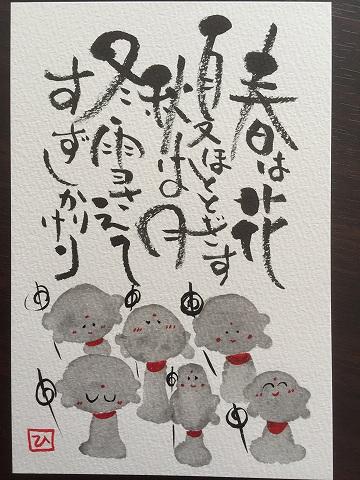 春は花
夏ほととぎす
秋は月
冬雪さえて
すずしかりけり
ひ